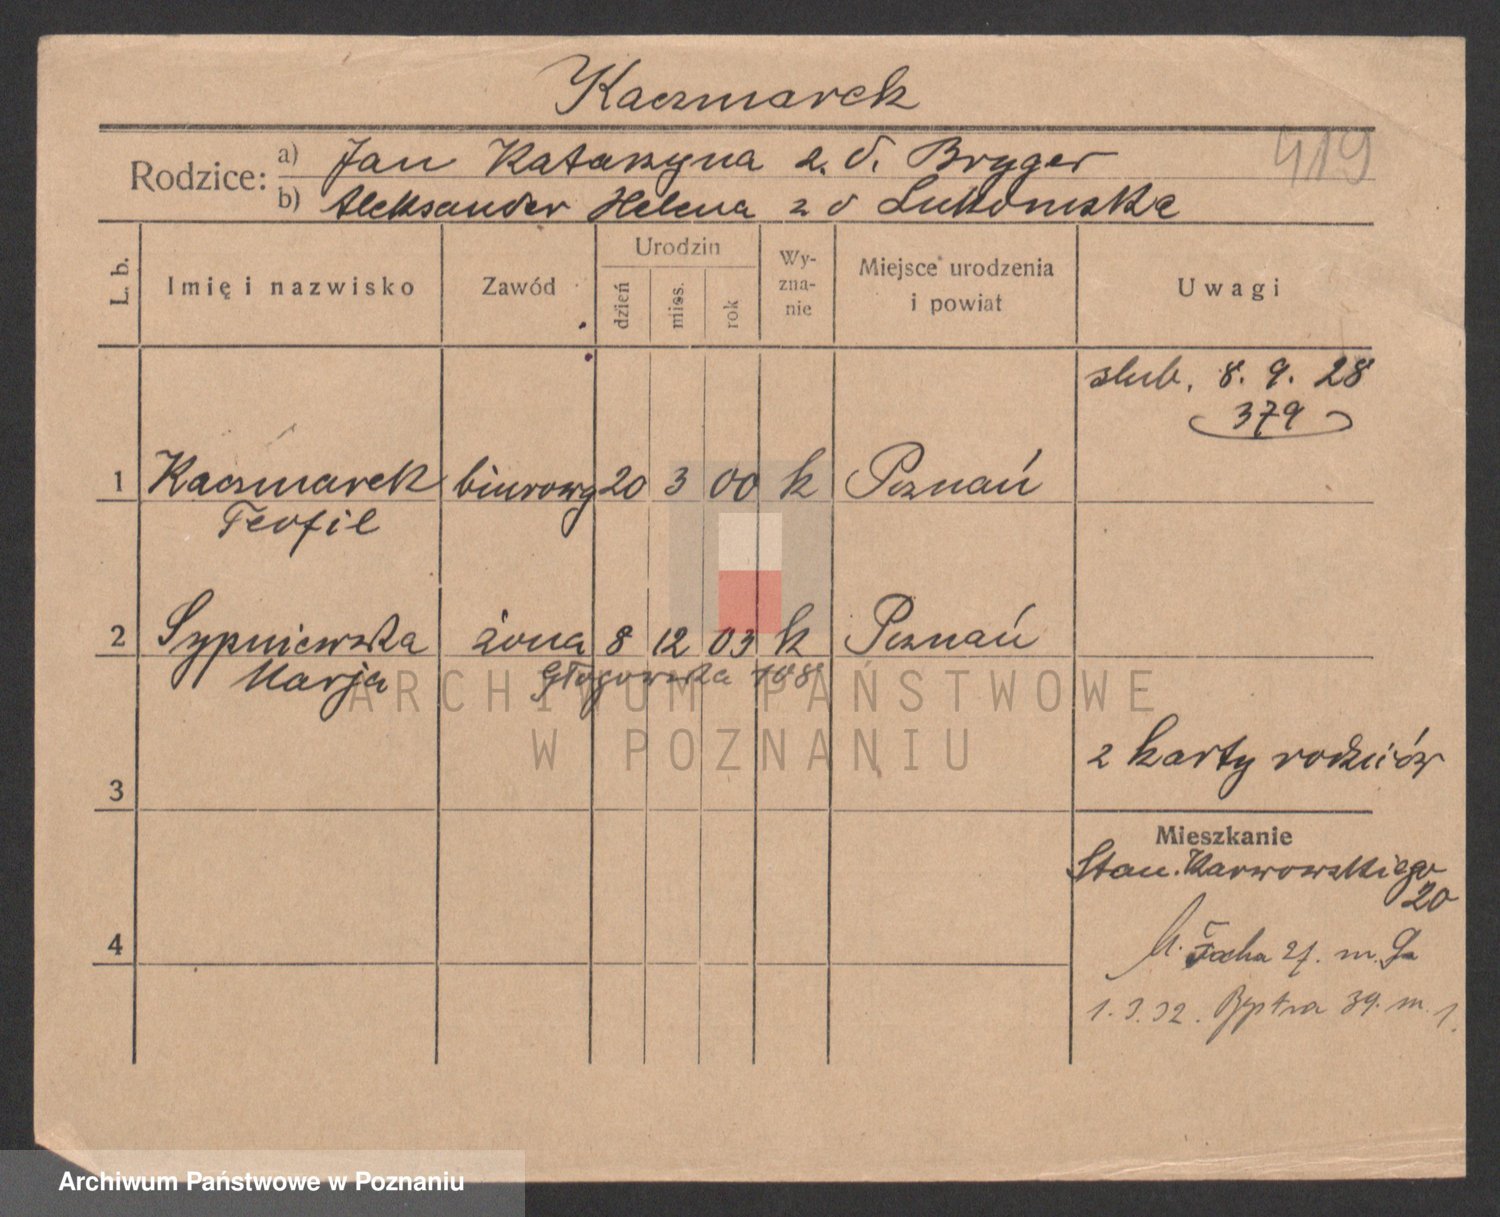 Kaczmarek
419
Rodzice: a) Jan Katarzyna z. d. Bryger
b) Aleksander Helena z d Łukomska
L. b. Imię i nazwisko Zawód Urodzin dzień mies. rok Wyzna-nie Miejsce urodzenia i powiat Uwagi
slub. 8. 9. 28
379
1 Kaczmarek biurowy 20 3 00 k Poznań
Teofil
2 Sypniewska żona 8 12 03 k Poznań
Marja Głogowska 108
ARCHIWUM PAŃSTWOWE
W POZNANIU
2 karty rodziców
3
Mieszkanie
Stan. Karwowskiego
20
4
M. Focha 27. m. 9a
1. 3. 32. Bystra 39. m. 1.
Archiwum Państwowe w Poznaniu